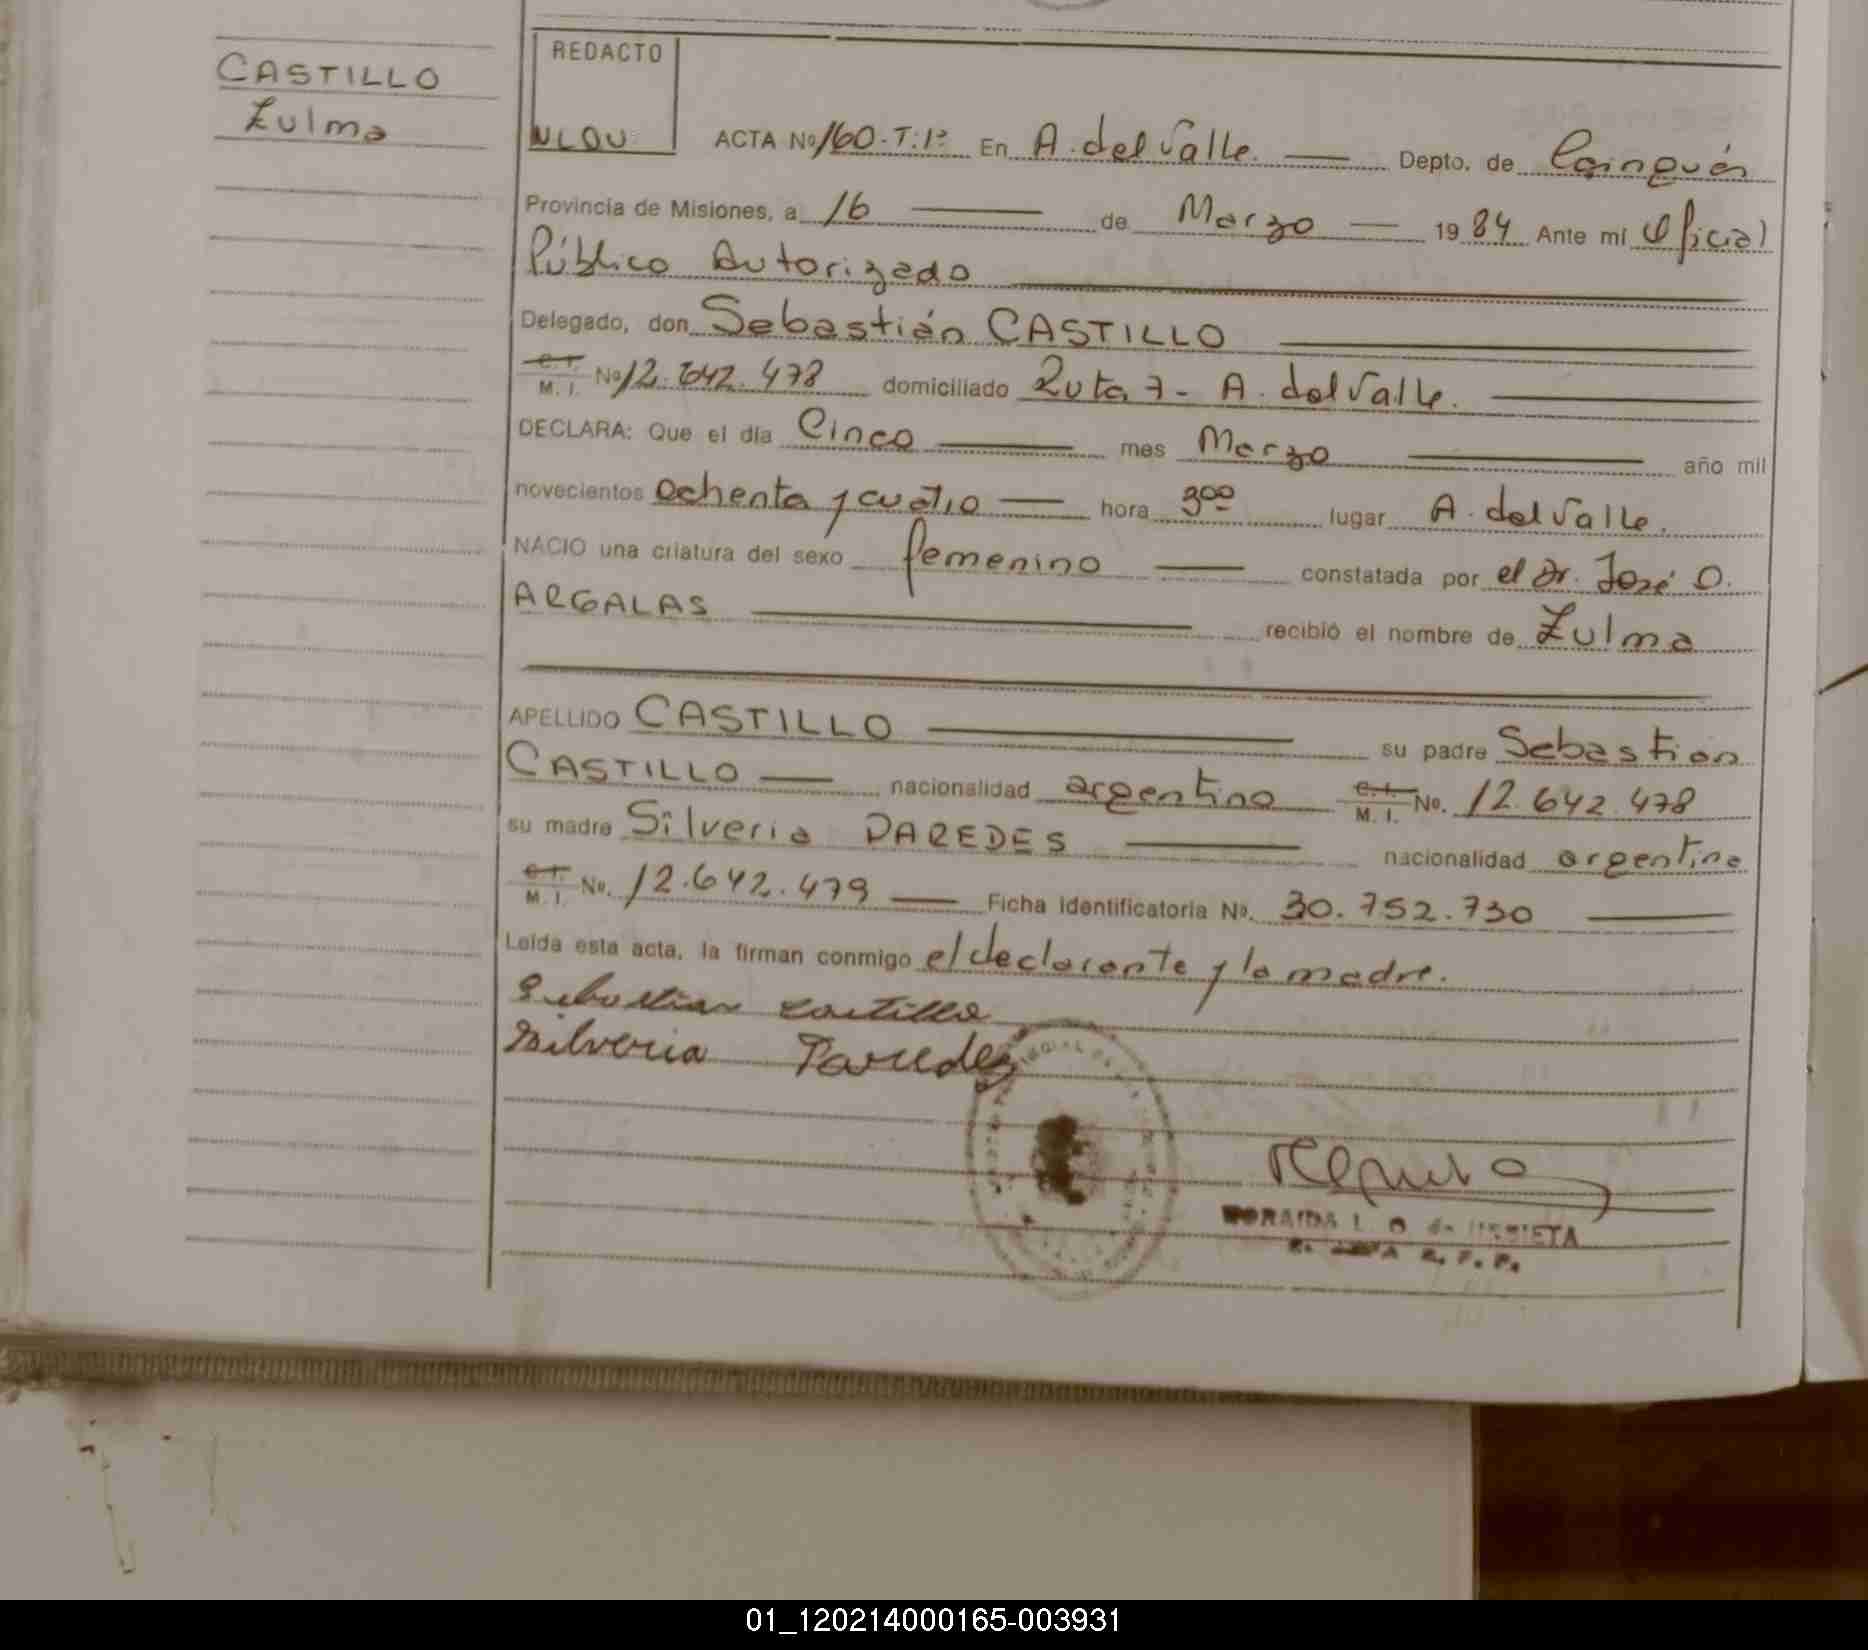 CASTILLO
Zulma
REDACTO
NLDU
ACTA Nº 160-T:1º En A. del Valle. Depto. de Cainguás
Provincia de Misiones, a 16 de Marzo 1984 Ante mí Oficial
Público Autorizado
Delegado, don Sebastián CASTILLO
C.I. M. I. Nº 12.642.478 domiciliado Ruta 7- A. del Valle.
DECLARA: Que el día Cinco mes Marzo año mil
novecientos ochenta y cuatro hora 3ºº lugar A. del Valle.
NACIO una criatura del sexo femenino constatada por el Dr. José O.
ARGALAS recibió el nombre de Zulma
APELLIDO CASTILLO su padre Sebastián
CASTILLO nacionalidad argentino C.I. M. I. Nº. 12.642.478
su madre Silveria PAREDES nacionalidad argentina
C.I. M. I. Nº. 12.642.479 Ficha Identificatoria Nº. 30.752.730
Leída esta acta, la firman conmigo el declarante y la madre.
Sebastian Castillo
Silveria Paredes
R. P. P.
01_120214000165-003931